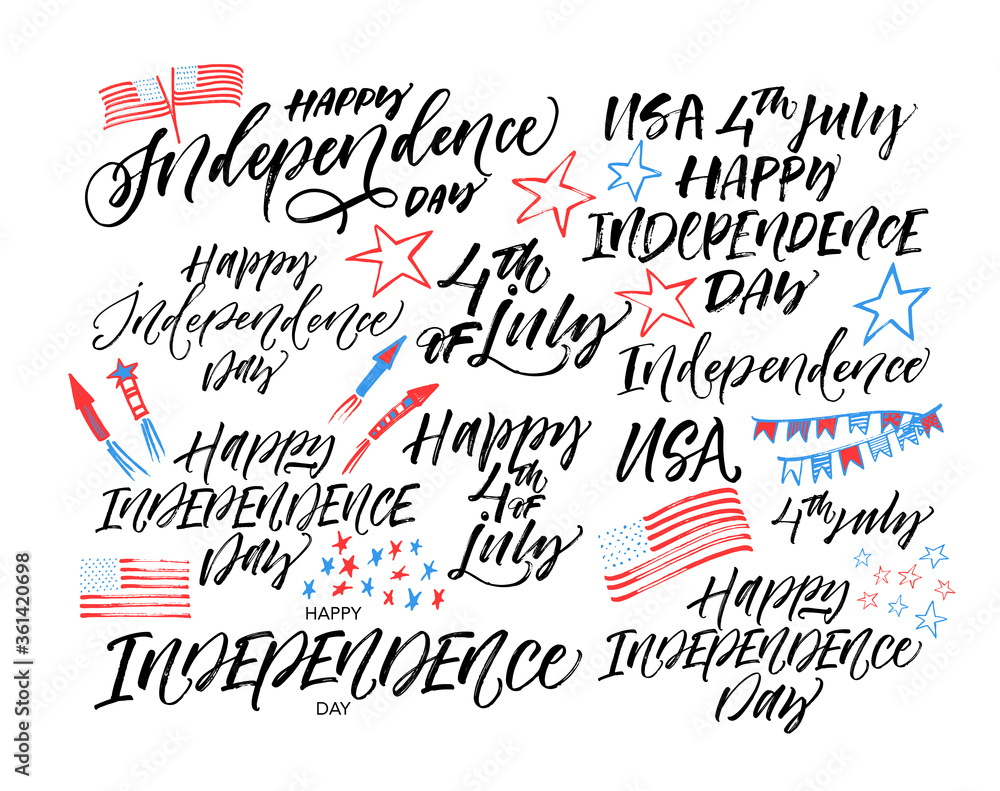 HAPPY
Independence
DAY
USA 4th July
HAPPY
INDEPENDENCE
DAY
Happy
Independence
Day
4th
OF July
Independence
Happy
INDEPENDENCE
Day
Happy
4th
OF
July
USA
4th July
HAPPY
INDEPENDENCE
DAY
Happy
INDEPENDENCE
Day
Adobe Stock | #361420698